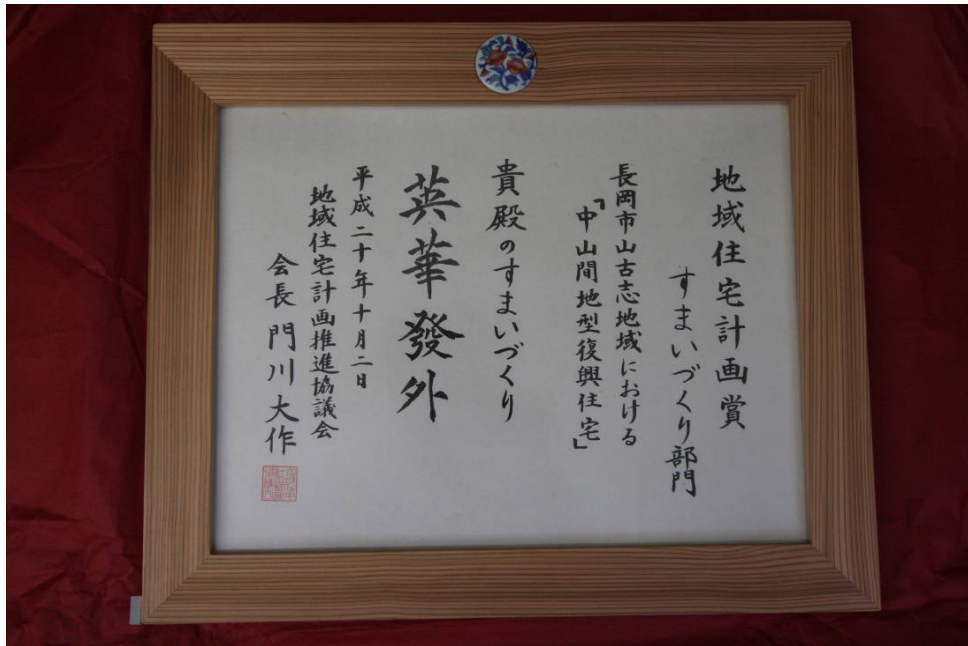 地域住宅計画賞
すまいづくり部門
長岡市山古志地域における
「中山間地型復興住宅」
貴殿のすまいづくり
英華發外
平成二十年十月二日
地域住宅計画推進協議会
会長 門川大作